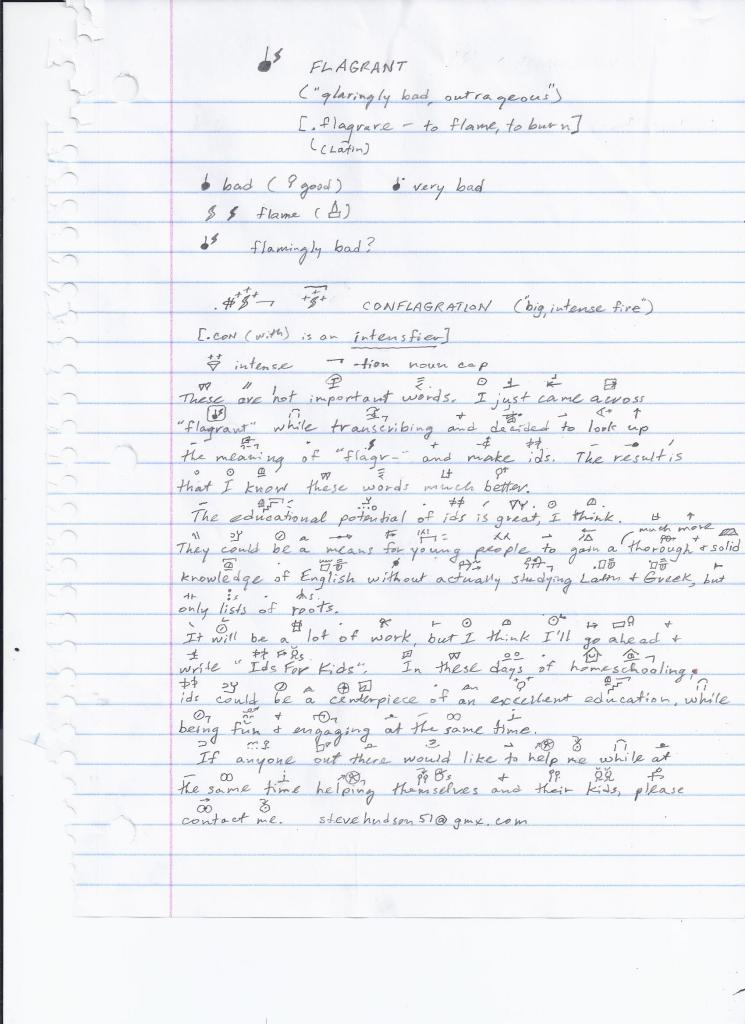 FLAGRANT
("glaringly bad, outrageous")
[.flagrare - to flame, to burn]
(Latin)
bad (good) very bad
flame ( )
flamingly bad?
CONFLAGRATION ("big, intense fire")
[.con (with) is an intensfier]
intense -tion noun cap
These are not important words. I just came across
"flagrant" while transcribing and decided to look up
the meaning of "flagr-" and make ids. The result is
that I know these words much better.
The educational potential of ids is great, I think.
much more
They could be a means for young people to gain a thorough + solid
knowledge of English without actually studying Latin + Greek, but
only lists of roots.
It will be a lot of work, but I think I'll go ahead +
write "Ids For Kids". In these days of homeschooling,
ids could be a centerpiece of an excellent education, while
being fun + engaging at the same time.
If anyone out there would like to help me while at
the same time helping themselves and their kids, please
contact me. stevehudson51@gmx.com